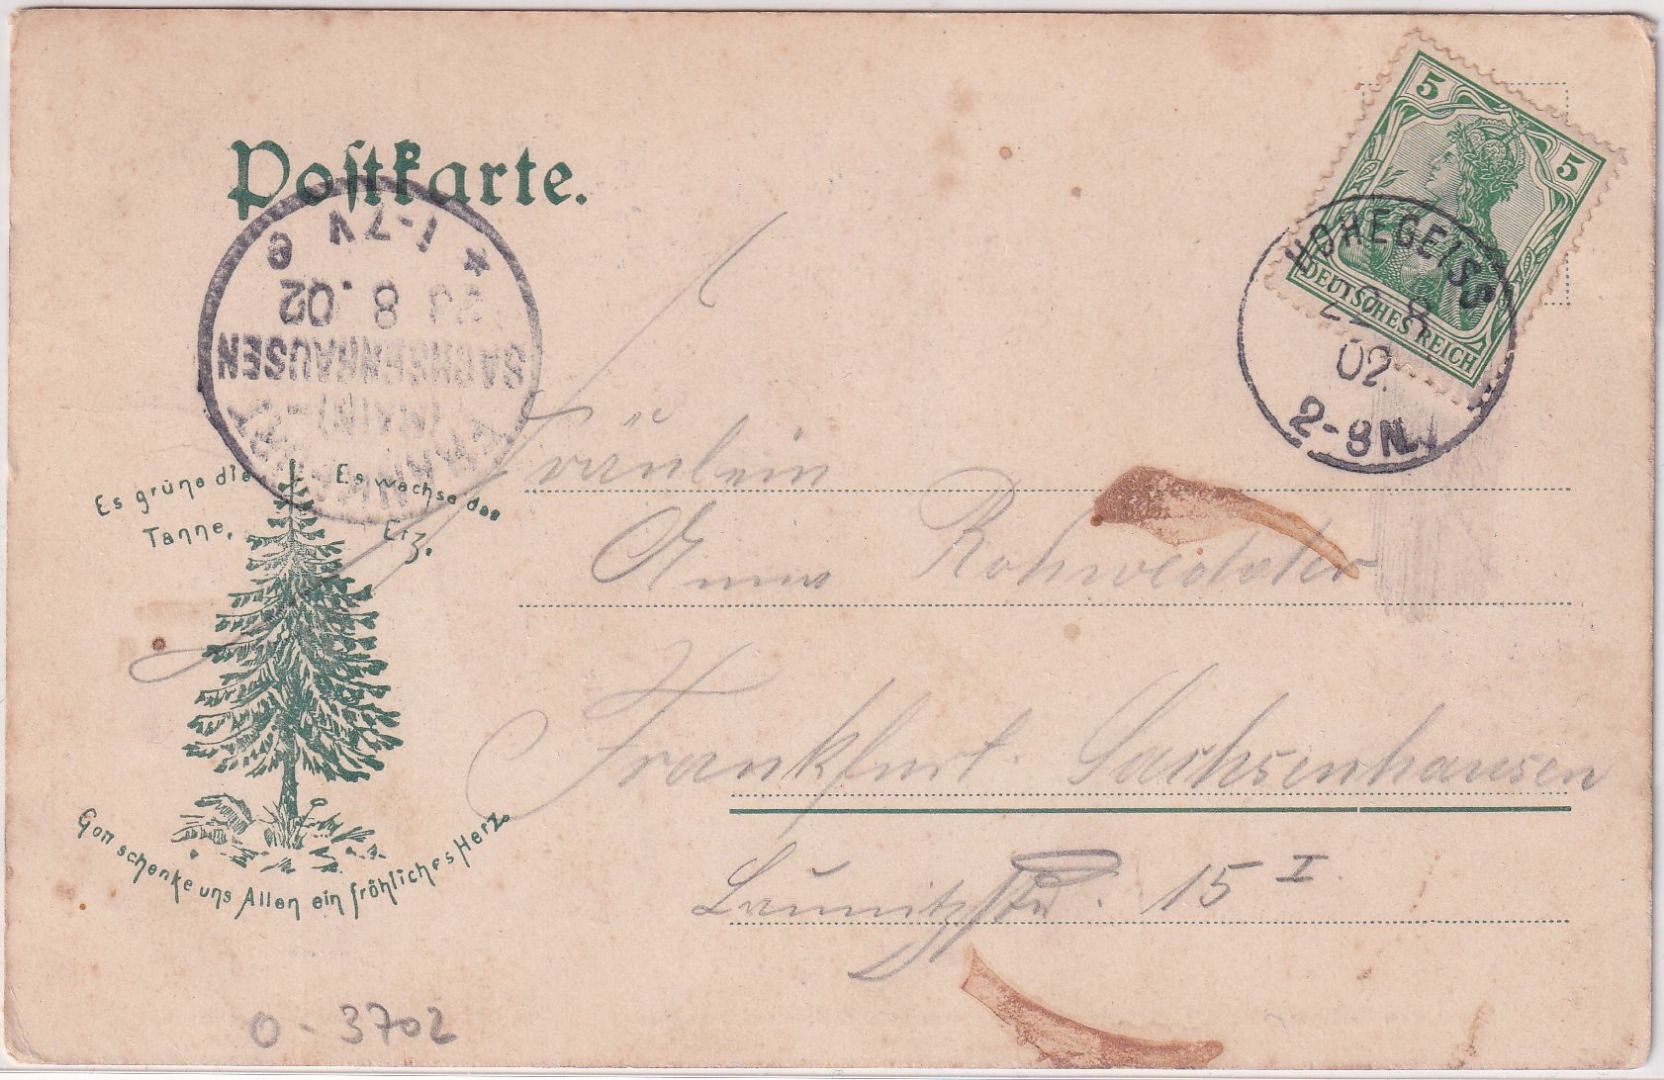 Postkarte.
5 5
DEUTSCHES REICH
HOHEGEISS
22 8
02.
2-8N.
* 1-7V e
23 8.02
SACHSENHAUSEN
(MAIN)-
FRANKFURT
Es grüne die
Tanne.
Es wachse das
Erz.
Gott schenke uns Allen ein fröhliches Herz.
Fräulein
Anna Rohwedder
Frankfurt. Sachsenhausen
Launitzstr. 15 I.
0-3702